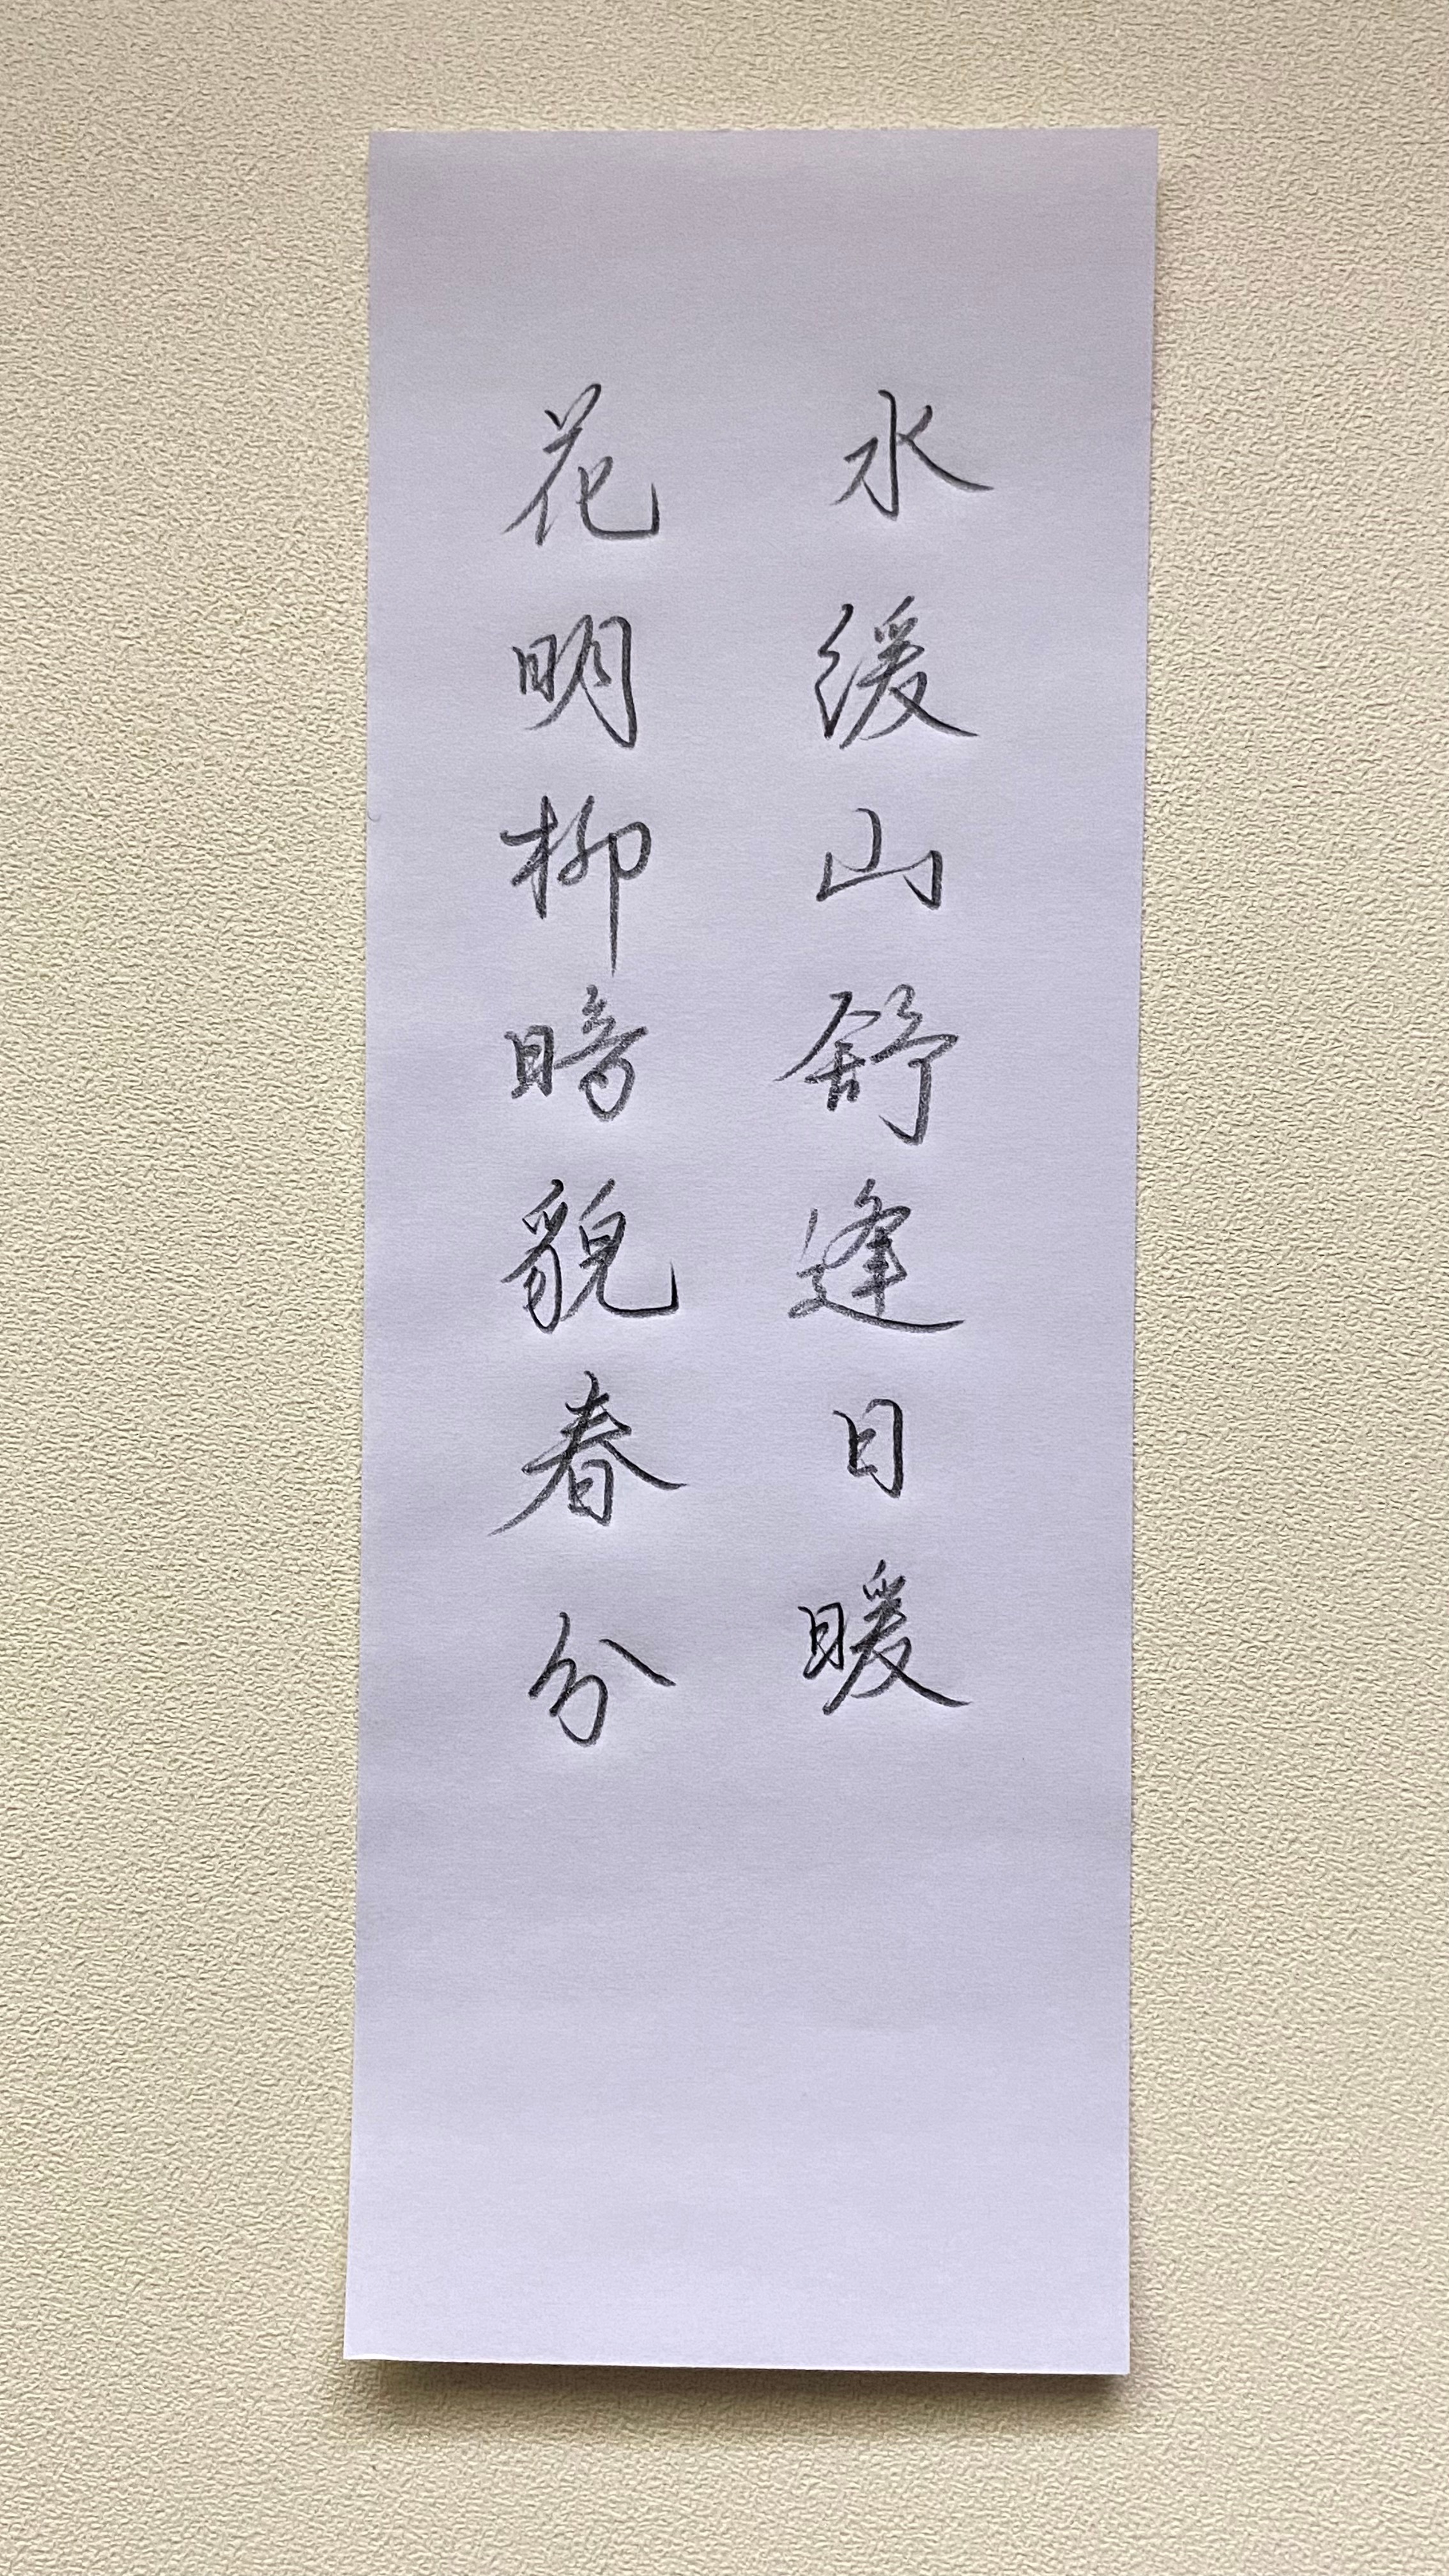 水缓山舒逢日暖
花明柳暗貌春分